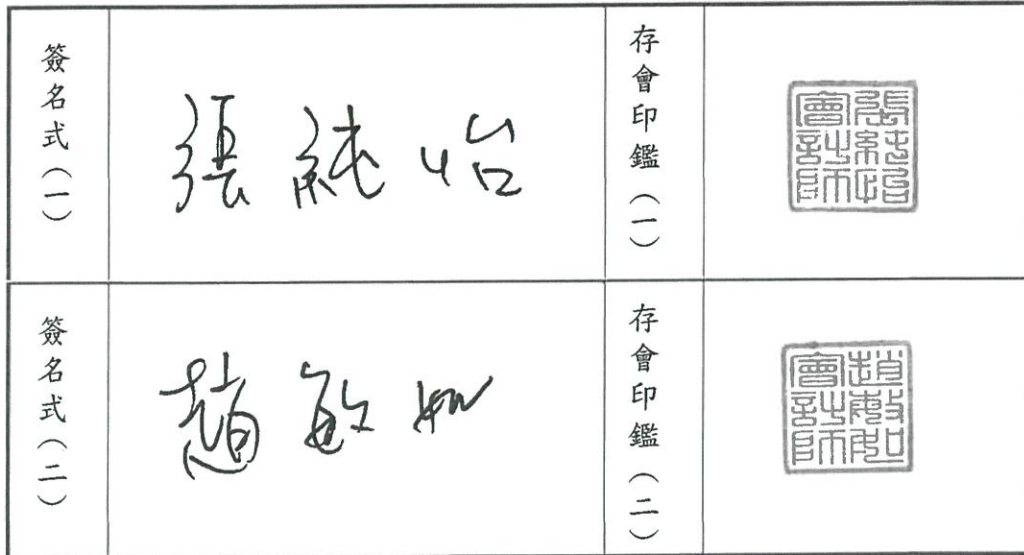 簽名式（一）
張純怡
存會印鑑（一）
張純怡會計師
簽名式（二）
趙敏如
存會印鑑（二）
趙敏如會計師